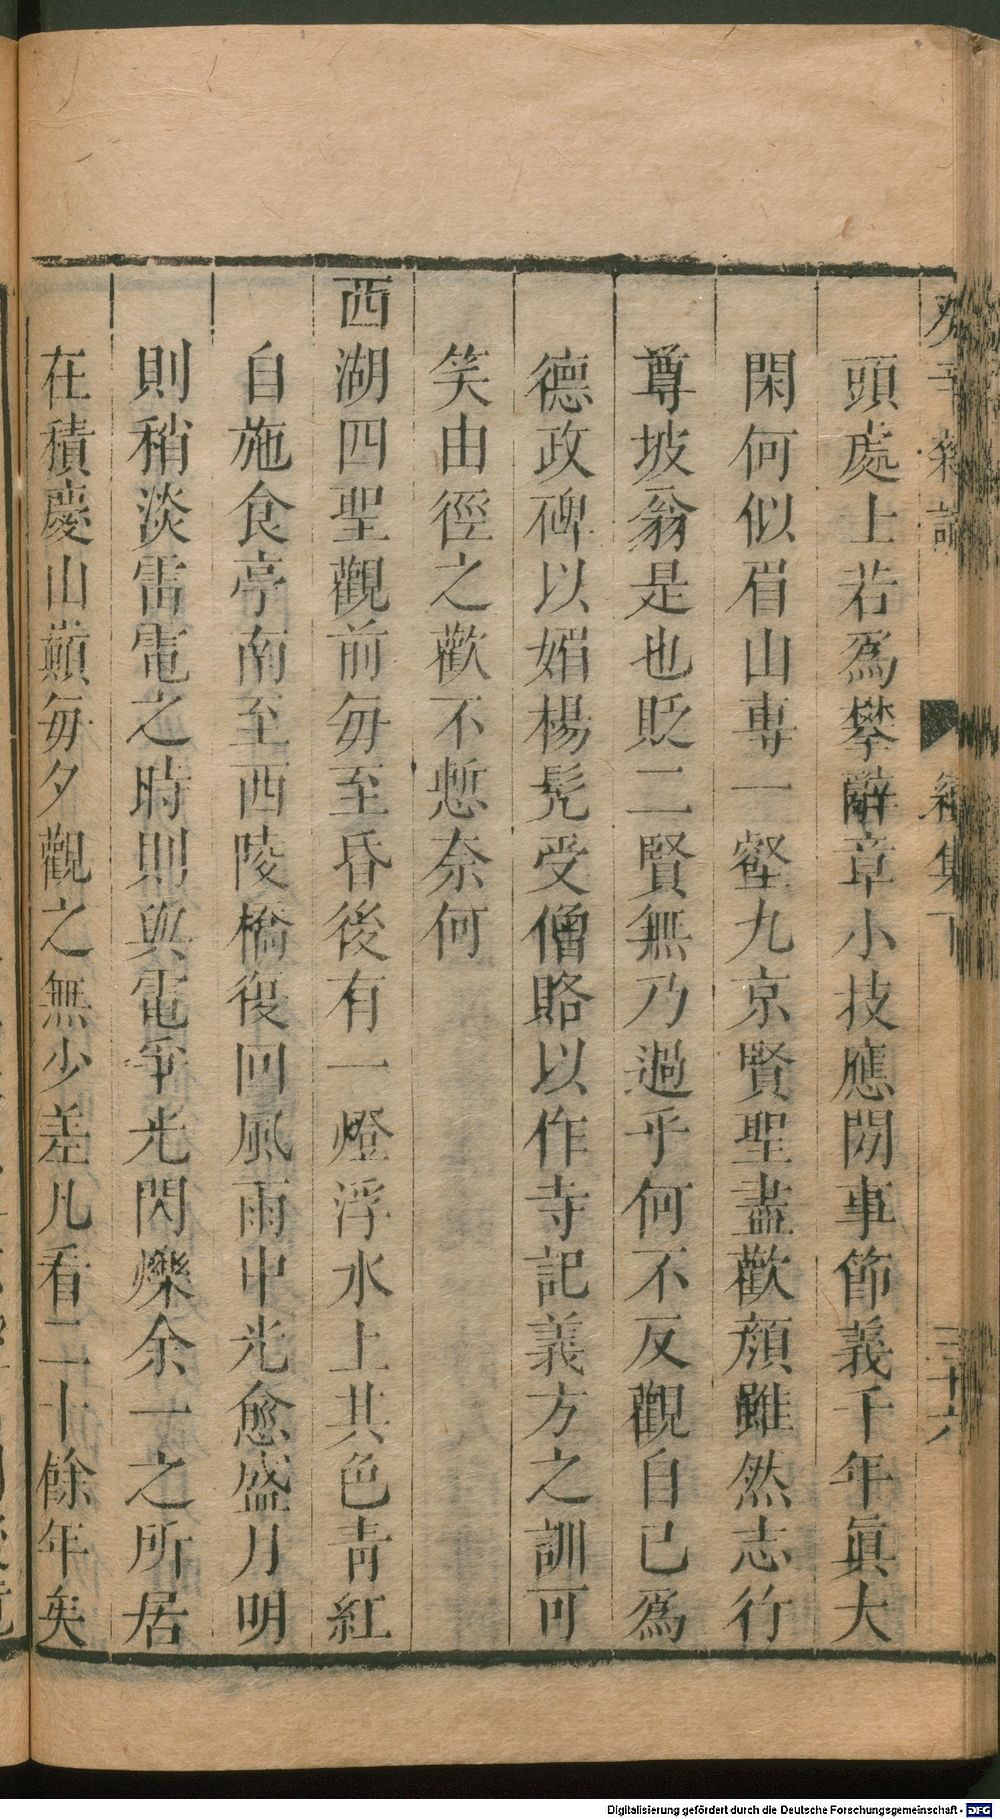 頭處上若爲攀辭章小技應閑事節義千年眞大
閑何似眉山專一壑九京賢聖盡歡顔雖然志行
尊坡翁是也貶二賢無乃過乎何不反觀自已爲
德政碑以媚楊髡受僧賂以作寺記義方之訓可
笑由徑之歡不慙奈何
西湖四聖觀前每至昏後有一燈浮水上其色青紅
自施食亭南至西陵橋復回風雨中光愈盛月明
則稍淡雷電之時則與電爭光閃爍余一之所居
在積慶山巔每夕觀之無少差凡看二十餘年矣
癸辛雜識
續集下
三十六
Digitalisierung gefördert durch die Deutsche Forschungsgemeinschaft - DFG